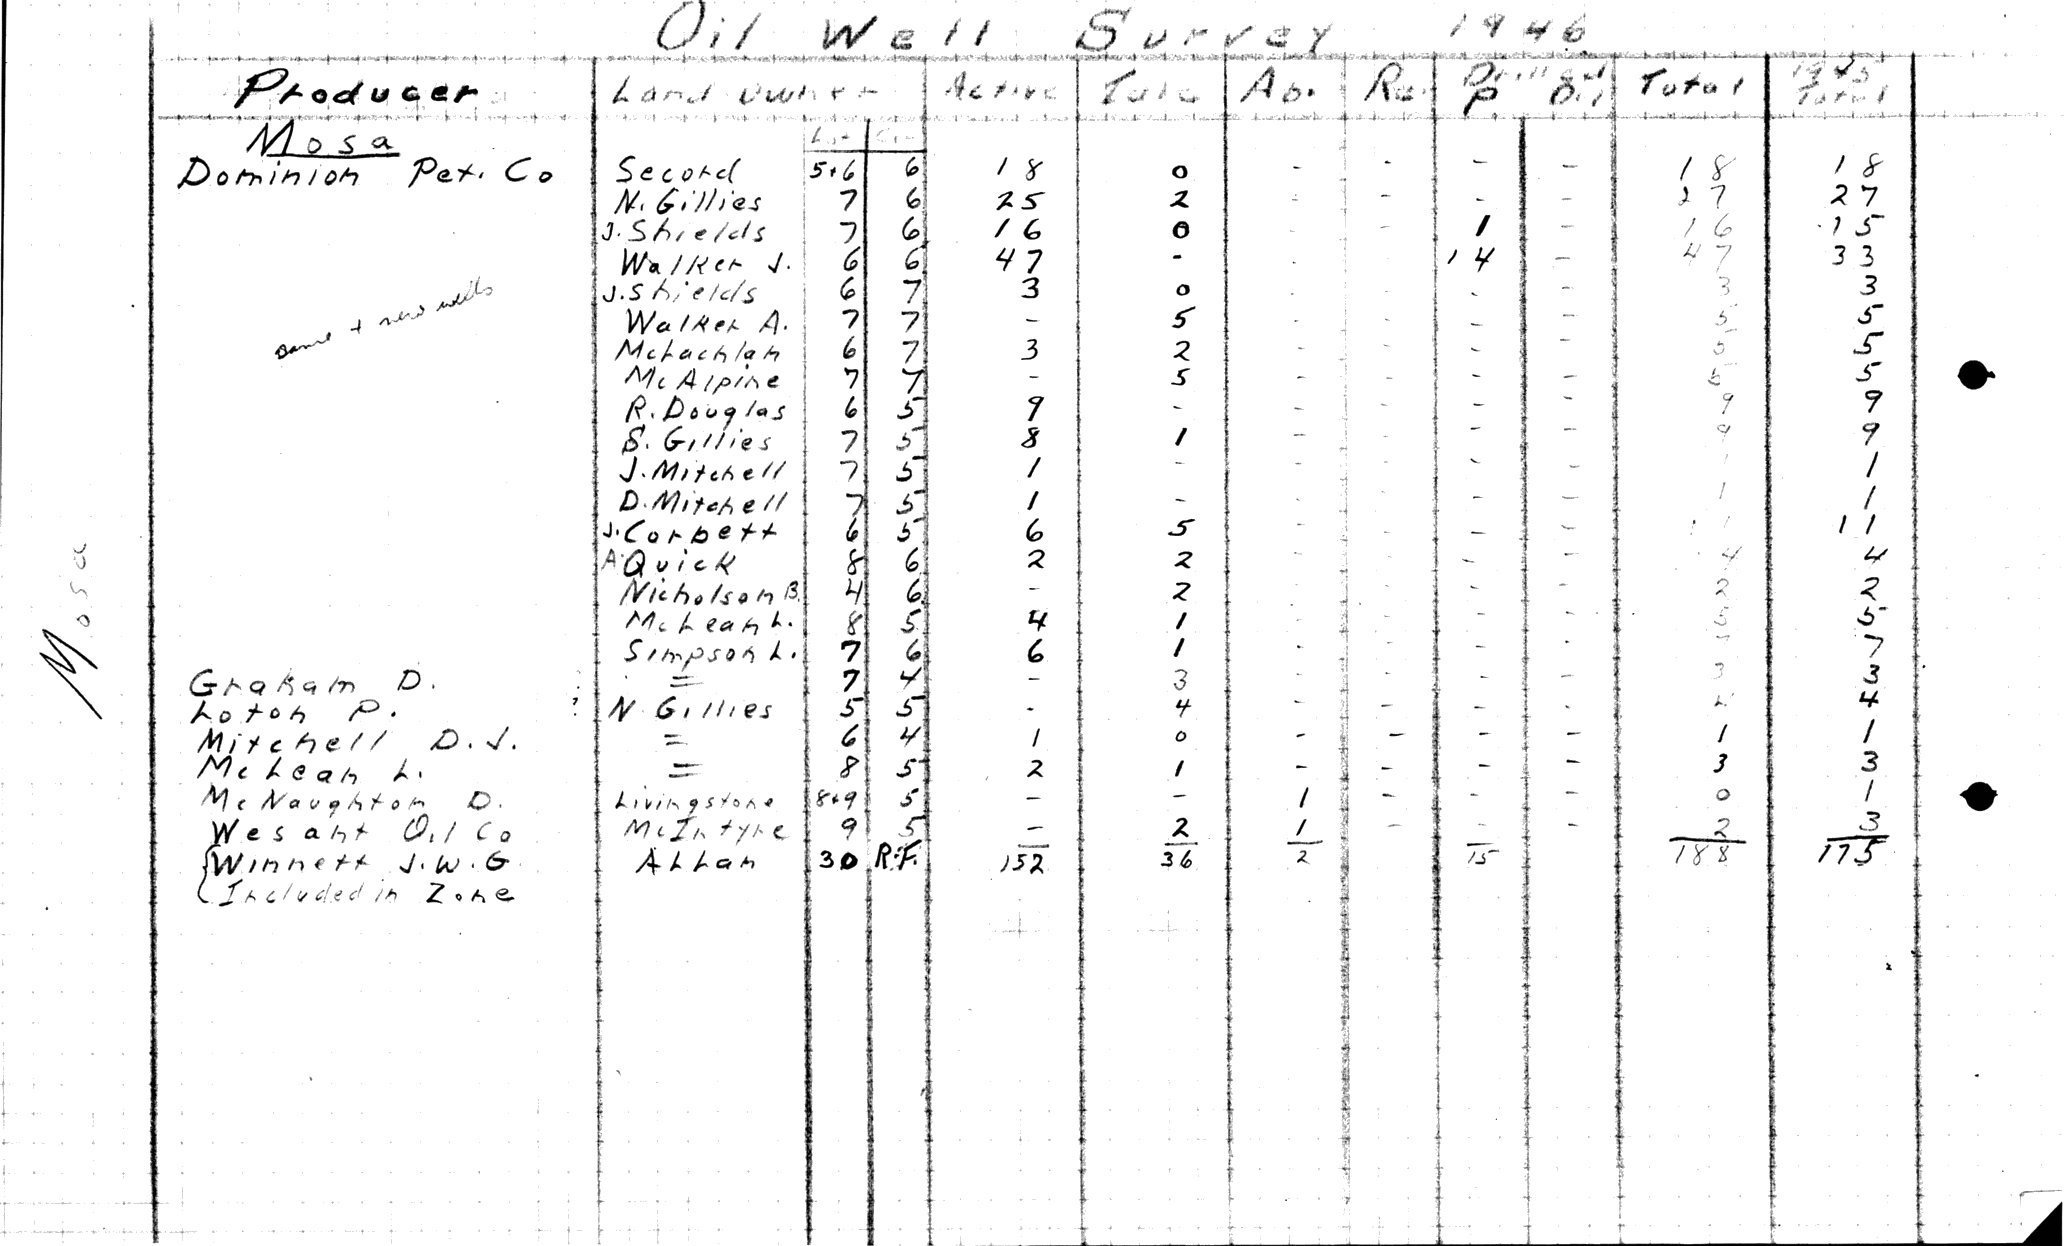 Oil Well Survey 1946
Producer Land Owner Active Idle Ab. Re. Drilled P. Oil Total 1945 Total
Mosa Lot Con
Dominion Pet. Co Second 5+6 6 18 0 - - - - 18 18
N. Gillies 7 6 25 2 - - - - 27 27
J. Shields 7 6 16 0 - - 1 - 16 15
Walker J. 6 6 47 - - - 14 - 47 33
J. Shields 6 7 3 0 - - - - 3 3
same + new wells
Walker A. 7 7 - 5 - - - - 5 5
McLachlan 6 7 3 2 - - - - 5 5
McAlpine 7 7 - 5 - - - - 5 5
R. Douglas 6 5 9 - - - - - 9 9
S. Gillies 7 5 8 1 - - - - 9 9
J. Mitchell 7 5 1 - - - - - 1 1
D. Mitchell 7 5 1 - - - - - 1 1
J. Corbett 6 5 6 5 - - - - 11 11
A. Quick 8 6 2 2 - - - - 4 4
Nicholson B. 4 6 - 2 - - - - 2 2
McLean L. 8 5 4 1 - - - - 5 5
Simpson L. 7 6 6 1 - - - - 7
Graham D. = 7 4 - 3 - - - - 3 3
Loton P. N Gillies 5 5 - 4 - - - - 4 4
Mitchell D.J. = 6 4 1 0 - - - - 1 1
McLean L. = 8 5 2 1 - - - - 3 3
McNaughton D. Livingstone 8+9 5 - - 1 - - - 0 1
Wesant Oil Co McIntyre 9 5 - 2 1 - - - 2 3
Winnett J.W.G. Allan 30 R.F. 152 36 2 15 188 175
Included in Zone
Mosa